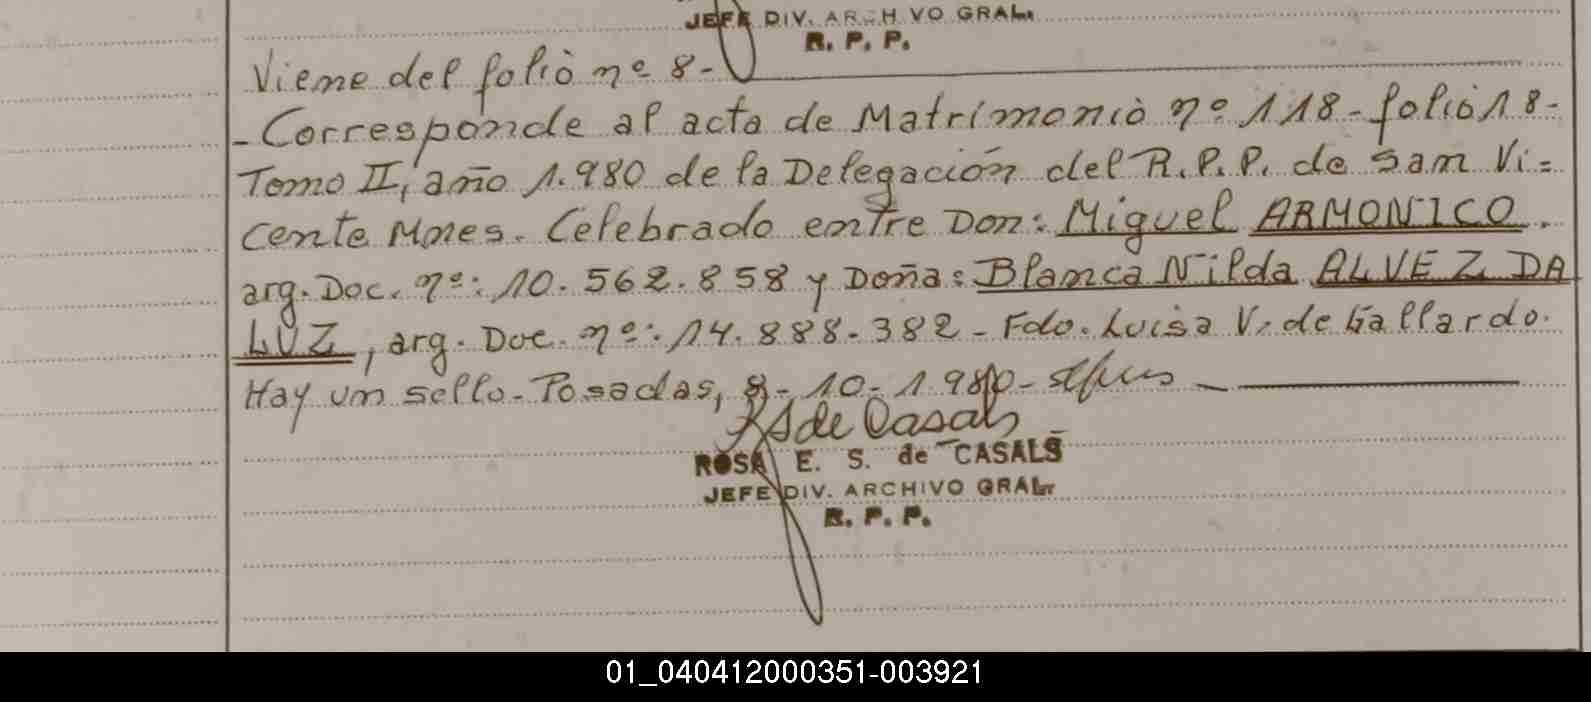 JEFE DIV. ARCHIVO GRAL.
R. P. P.
Viene del folio nº 8-
-Corresponde al acta de Matrimonio nº 118-folio 18-
Tomo II, año 1.980 de la Delegación del R.P.P. de San Vi=
cente Mnes. Celebrado entre Don: Miguel ARMONICO.
arg. Doc. nº: 10.562.858 y Doña: Blanca Nilda ALVEZ DA
LUZ, arg. Doc. nº: 14.888.382 - Fdo. Luisa V. de Gallardo.
Hay un sello- Posadas, 8-10-1.980-
de Casals
ROSA E. S. de CASALS
JEFE DIV. ARCHIVO GRAL.
R. P. P.
01_040412000351-003921